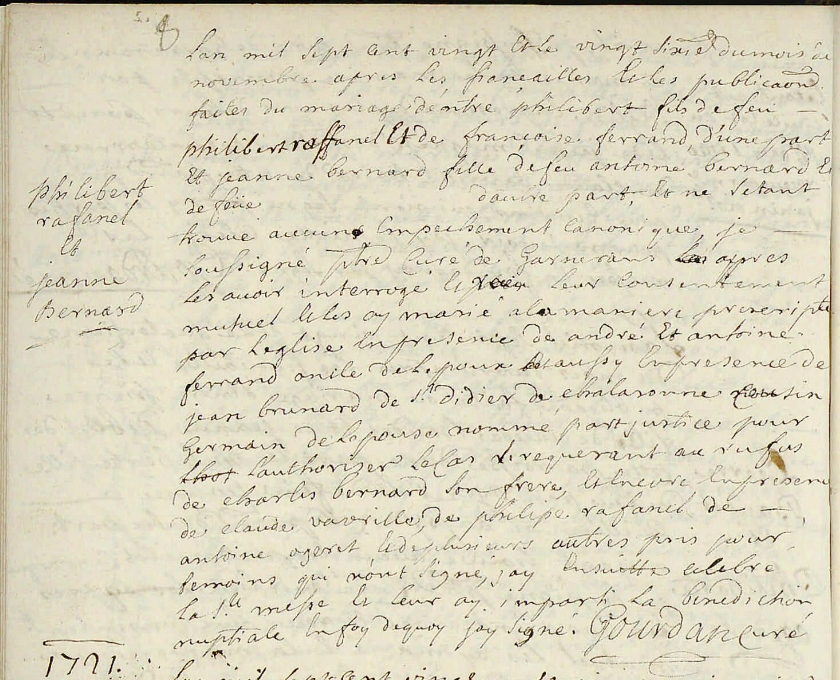 8
Lan mil sept cent vingt et le vingt sixie dumois de
novembre apres les fiancailles et les publicaons
faites du mariage d'entre philibert fils de feu
philibert raffanel Et de francoise ferrand, d'une part
Et jeanne bernard fille defeu antoine bernard Et
de feüe dautre part, Et ne setant
trouué aucune Empechement canonique, je
soussigné ptre Curé de Garnerans apres
les avoir interrogé et leur consentement
mutuel et les ay marié a la maniere prescripte
par Leglise En presence de andré Et antoine
ferrand oncle de Lepoux et aussy En presence de
jean brunard de St didier de chalaronne cousin
Germain de Lepouse nommé part justice pour
L'authoriser le Cas le requerant au rufus
de charles bernard son frere, Et Encore En presence
de claude vavrille, de philipe rafanel de
antoine ogeret et de plusieurs autres pris pour
temoins qui n'ont signe, jay Ensuitte celebre
la Ste messe et leur ay imparti La benediction
nuptiale En foy dequoy jay signé. Gourdan curé
philibert
rafanel
et
jeanne
Bernard
1721.